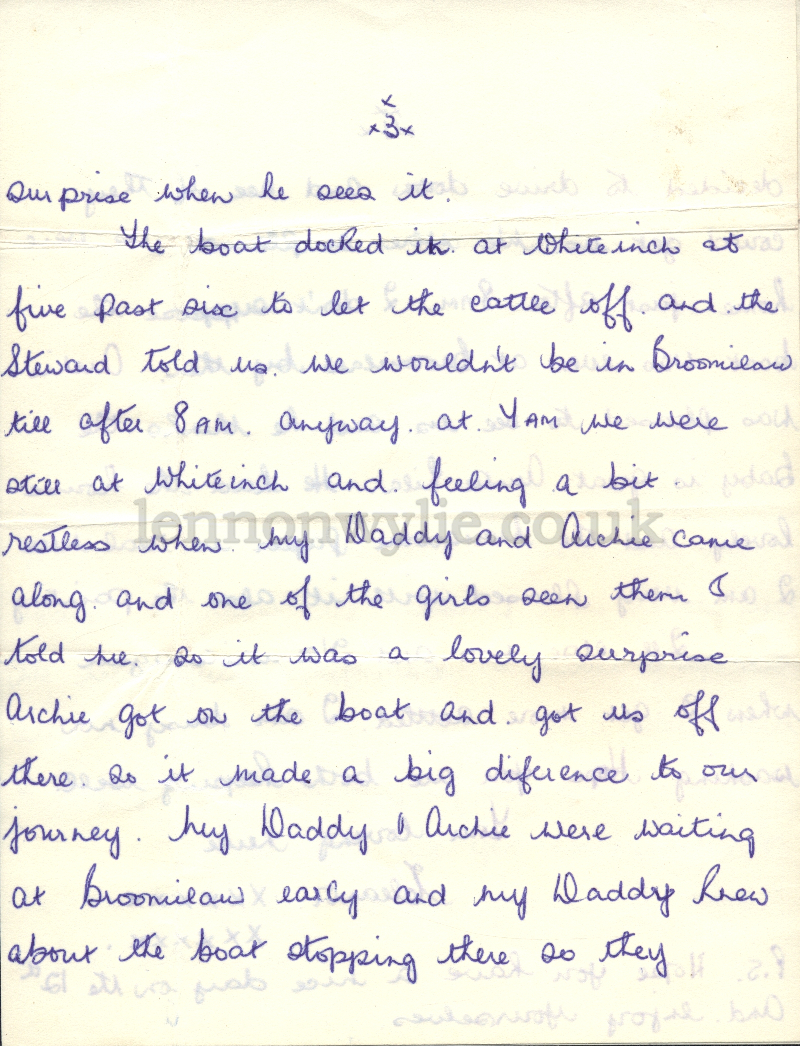 x
x3x
surprise when he sees it.
The boat docked in at Whiteinch at
five past six to let the cattle off. and. the
Steward told us. we wouldn't be in Broomielaw
till after 8 AM. anyway. at. 7 AM we were
still at Whiteinch and. feeling a bit.
restless when. my Daddy and Archie came
along. and one of the girls seen them &
told me. so it was a lovely surprise
Archie got on the boat and. got us off
there. so it made a big diference to our
journey. My Daddy & Archie were waiting
at Broomielaw early and my Daddy knew
about the boat stopping there so they
lennonwylie.co.uk